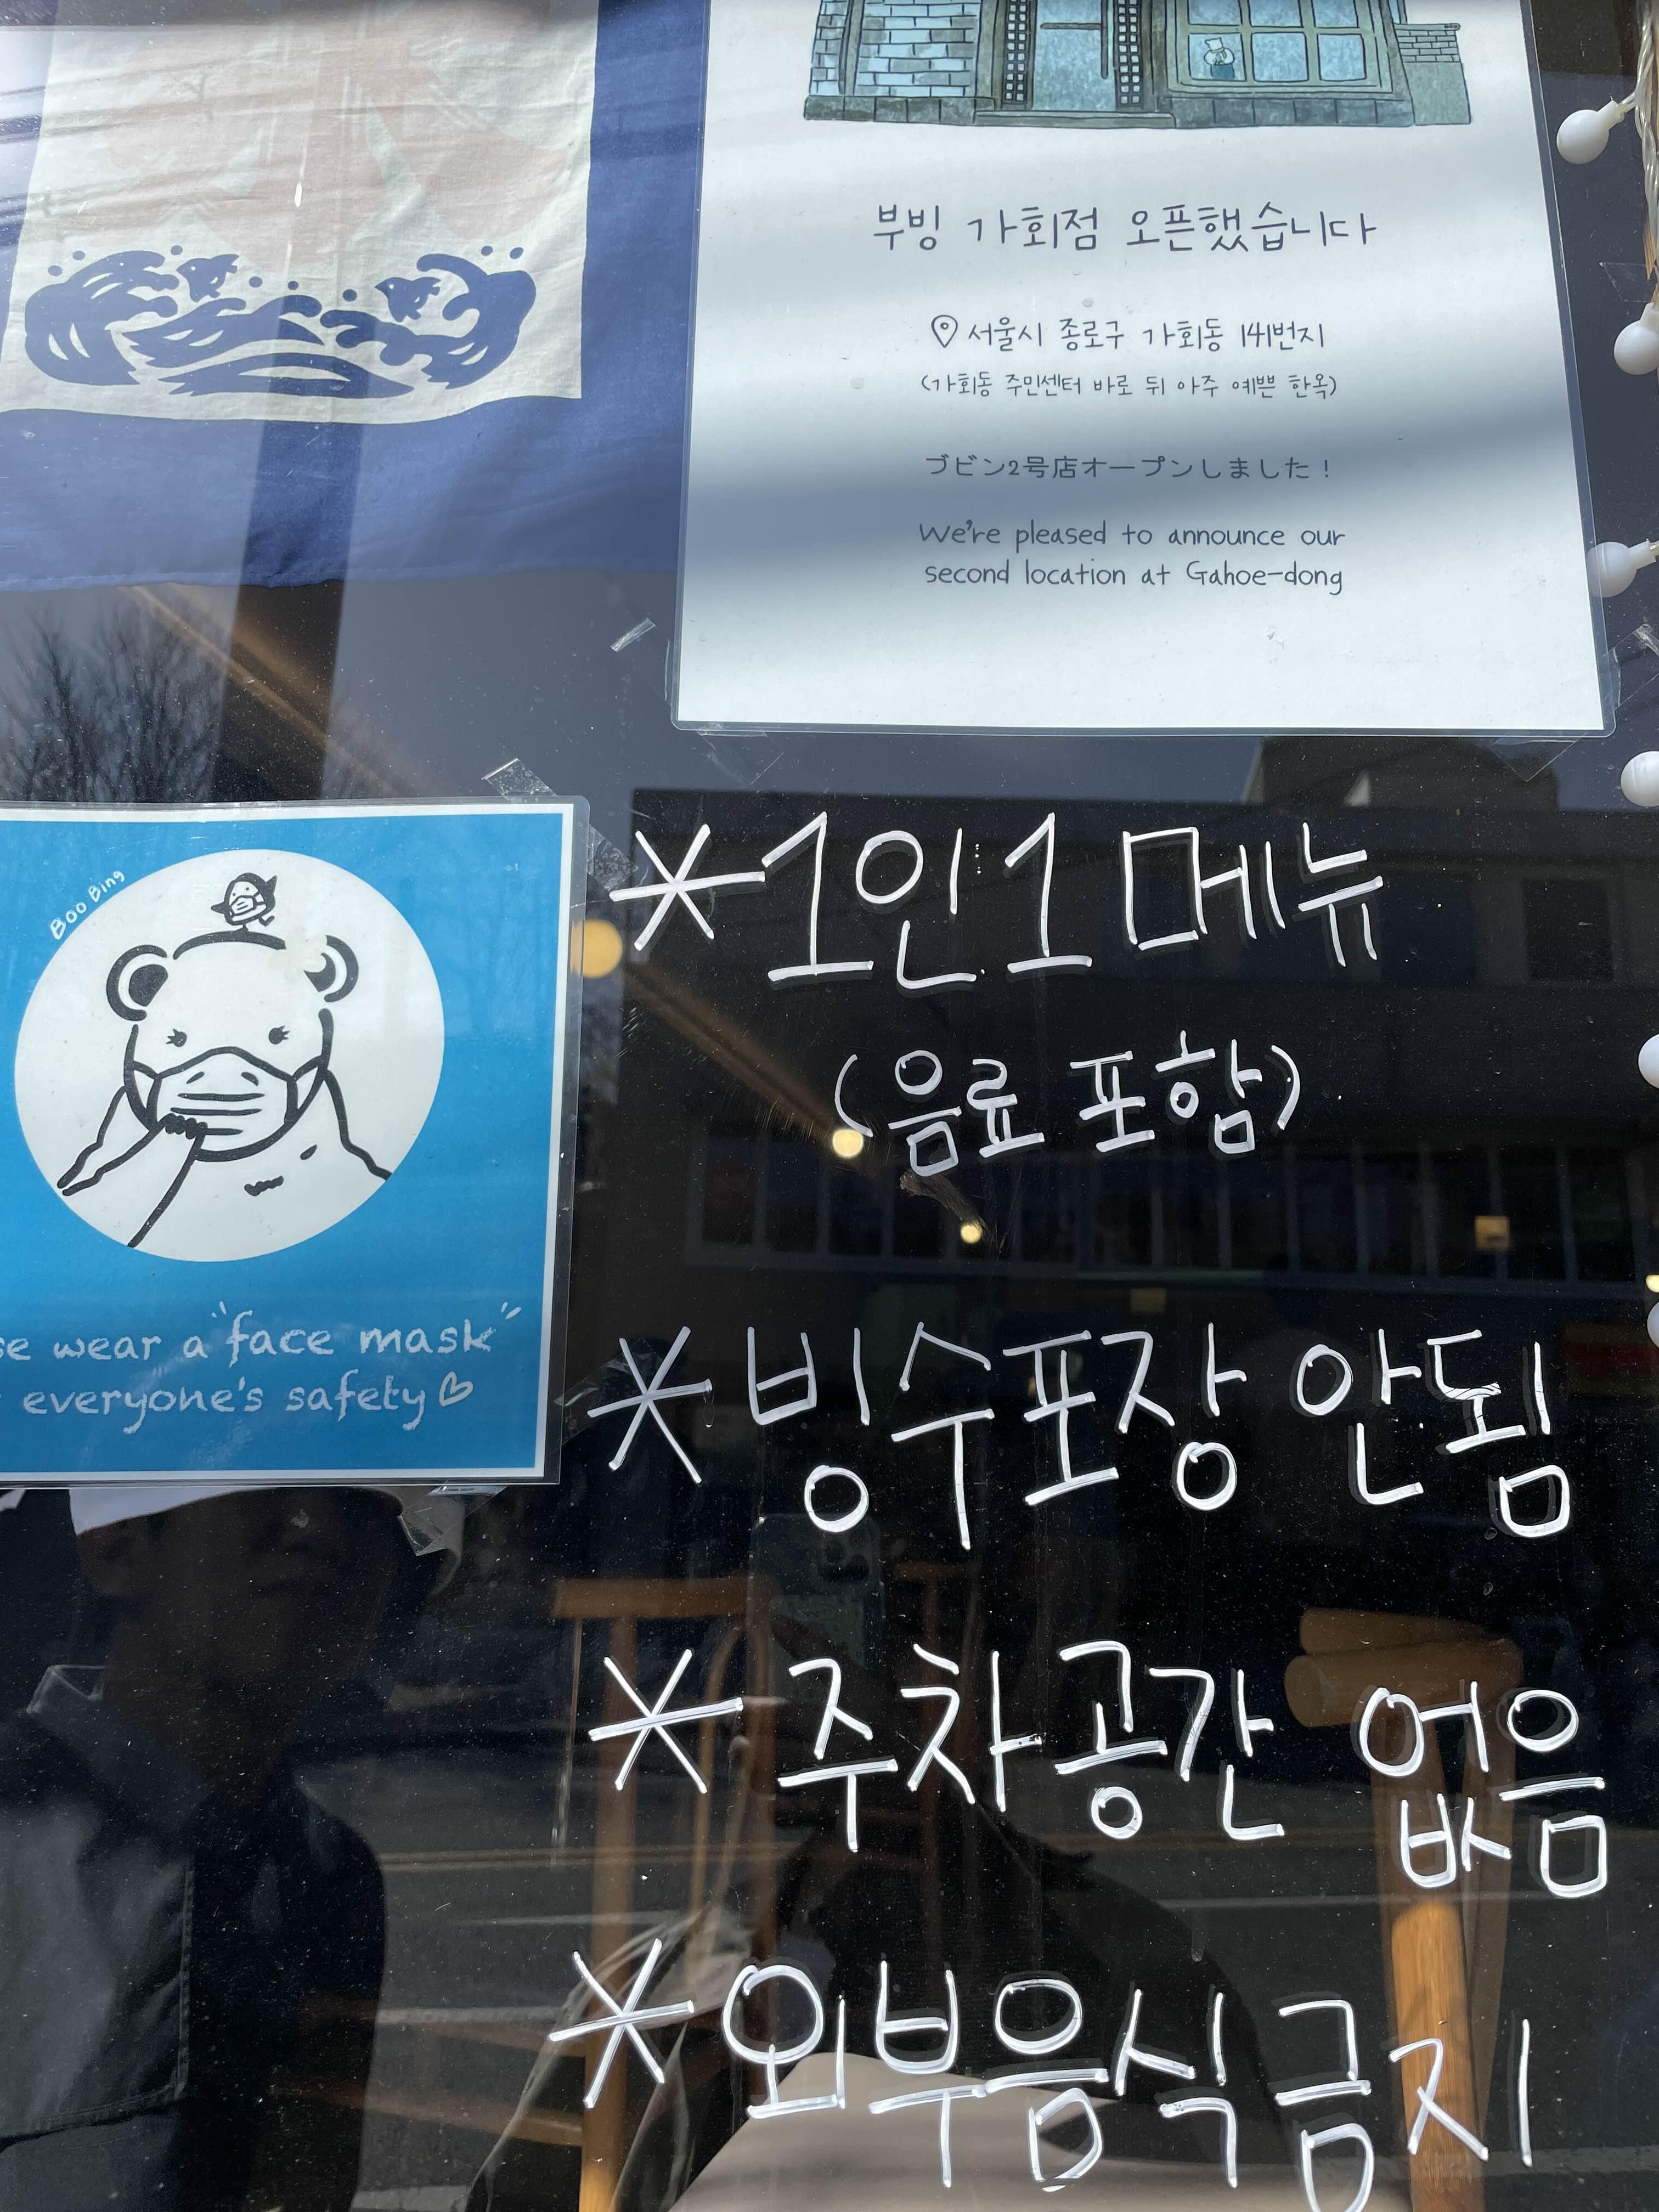 부빙 가회점 오픈했습니다
서울시 종로구 가회동 141번지
(가회동 주민센터 바로 뒤 아주 예쁜 한옥)
ブビン2号店オープンしました！
We're pleased to announce our
second location at Gahoe-dong
Boo Bing
wear a "face mask"
everyone's safety♡
*1인 1 메뉴
(음료 포함)
*빙수포장 안됨
*주차공간 없음
*외부음식금지